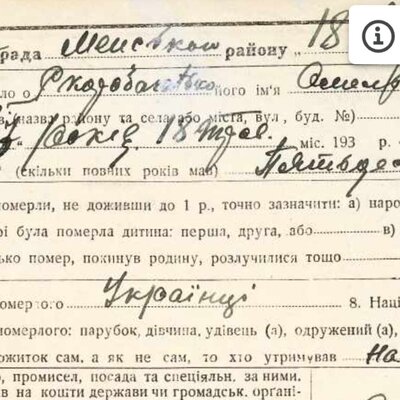 рада Менською району „18
ло о Скоробагатько його ім'я Омеля
в, назва району та села або міста, вул., буд. №)
міс. 193 р.
(скільки повних років мав) Пятьдес
померли, не доживши до 1 р., точно зазначити: а) наро
рі була померла дитина: перша, друга, або в)
лько помер, покинув родину, розлучилися тощо
омерлого Українці 8. Наці
померлого: парубок, дівчина, удівець (а), одружений (а),
ожиток сам, а як не сам, то хто утримував На
о, промисел, посада та спеціяльн. за ними.
ів на кошти держави чи громадськ. органі-